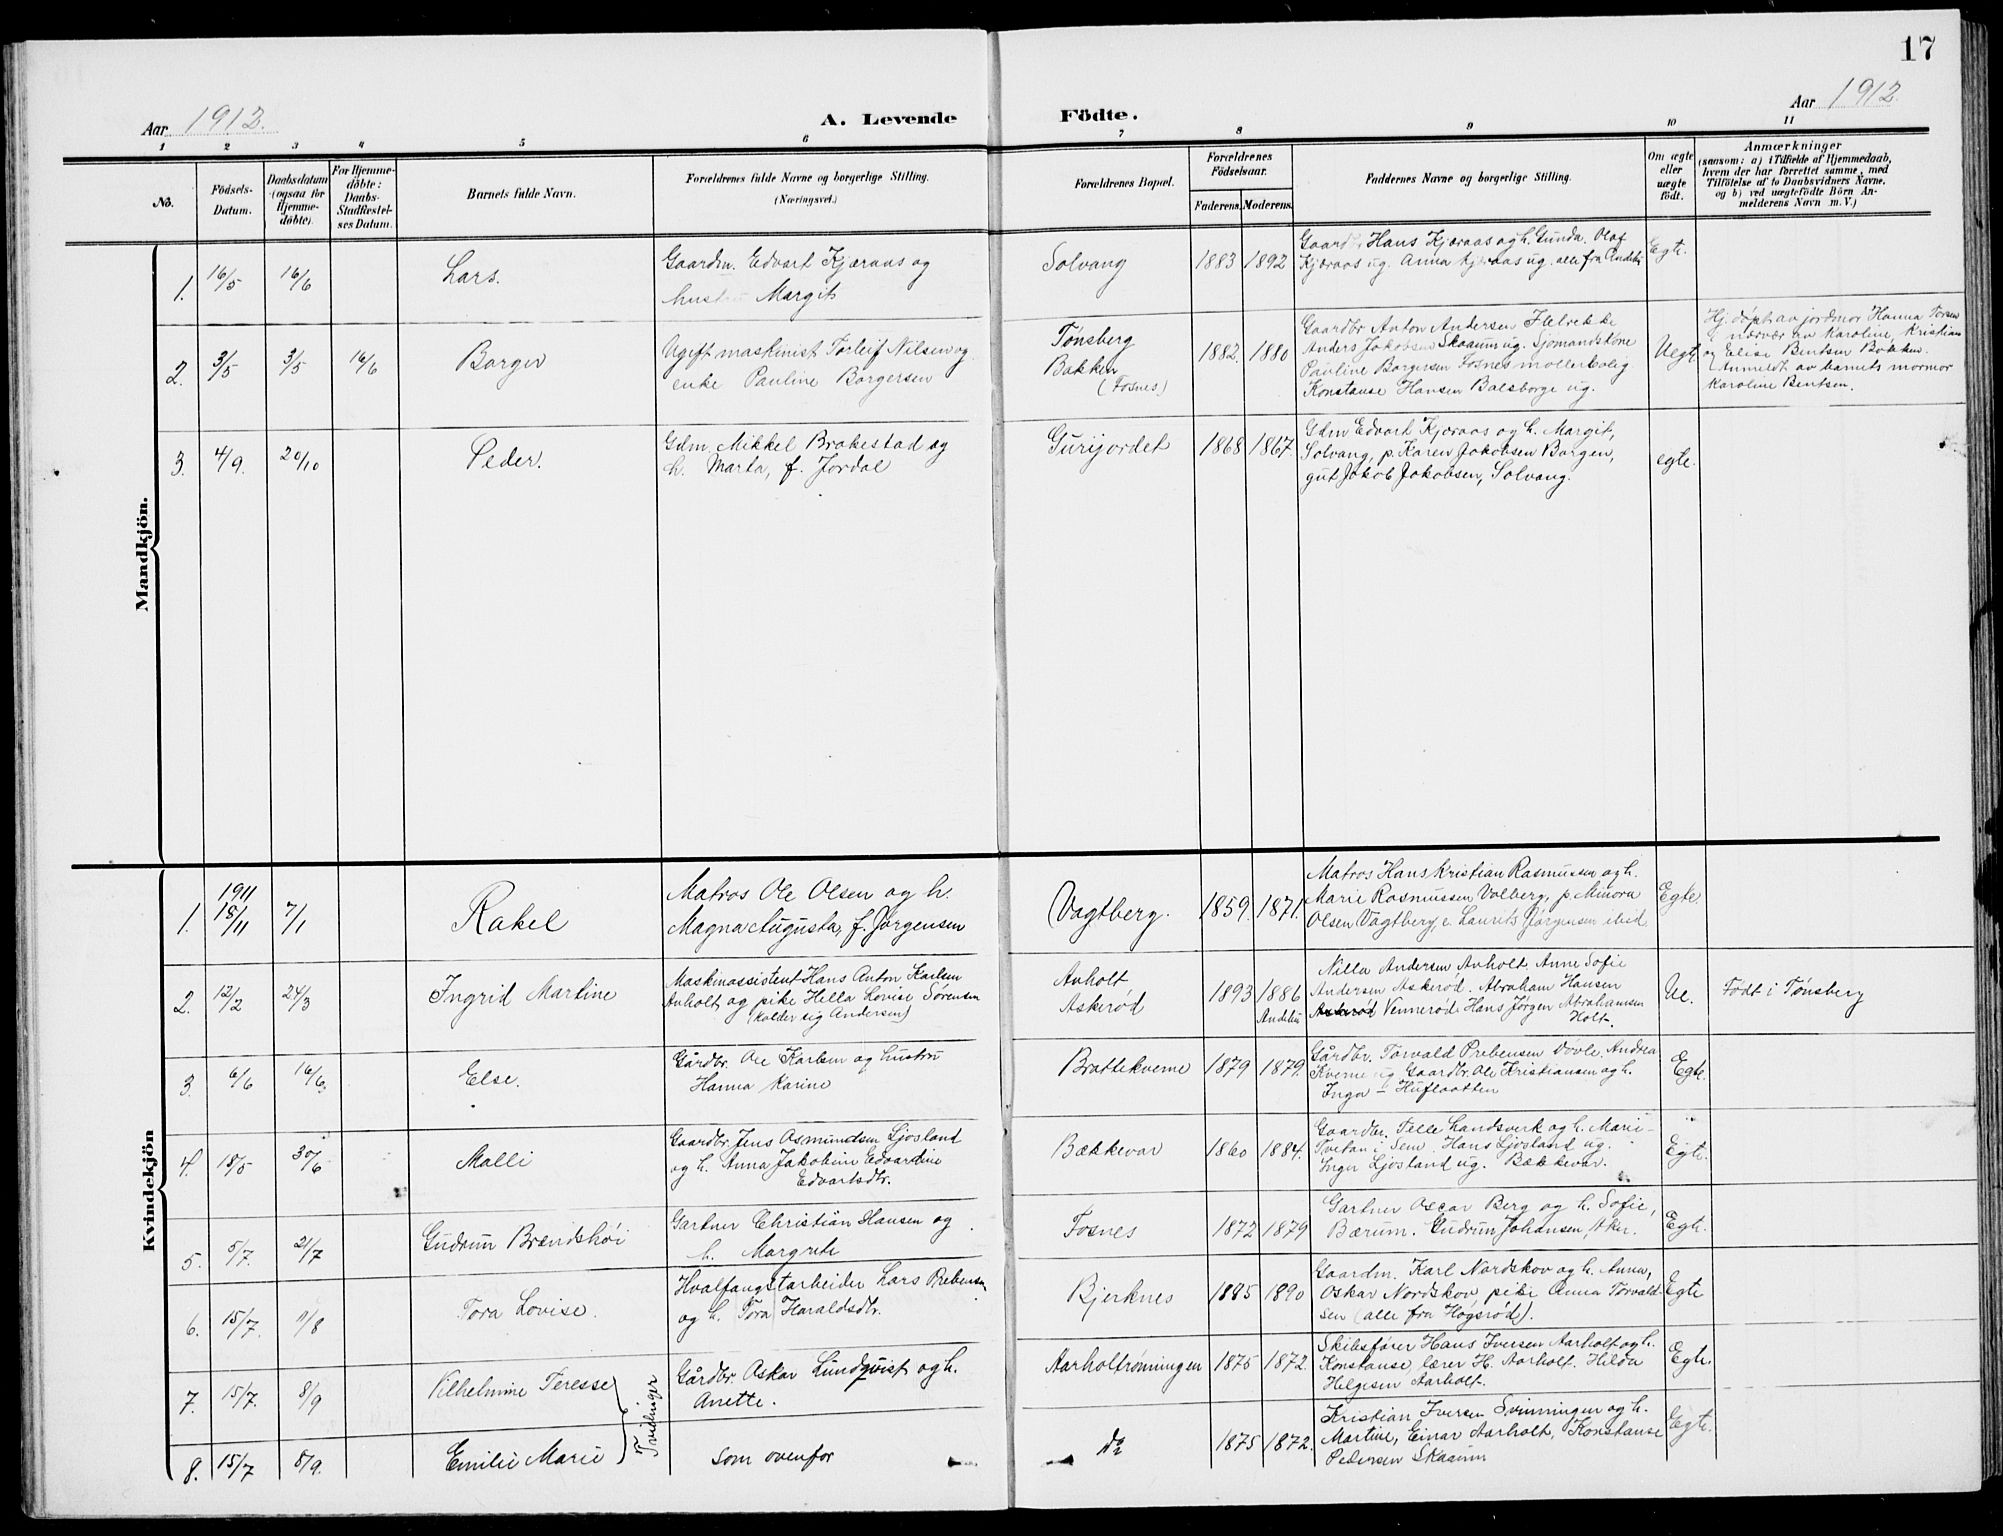 17
Aar 1912.
A. Levende
Födte.
Aar 1912.
1 2 3 4 5 6 7 8 9 10 11
No.
Födsels-
Datum.
Daabsdatum
(ogsaa for
Hjemme-
döbte).
For Hjemme-
döbte:
Daabs-
Stadfæstel-
ses Datum.
Barnets fulde Navn.
Forældrenes fulde Navne og borgerlige Stilling.
(Næringsvei.)
Forældrenes Bopæl.
Forældrenes
Födselsaar.
Faderens.
Moderens.
Faddernes Navne og borgerlige Stilling.
Om ægte
eller
uægte
födt.
Anmærkninger
(saasom: a) i Tilfælde af Hjemmedaab,
hvem der har forrettet samme, med
Tilföielse af to Daabsvidners Navne,
og b) ved uægtefödte Börn An-
melderens Navn m. V.)
Mandkjön.
1. 16/5 16/6 Lars.
Gaardm. Edvart Kjæraas og
hustru Margit
Solvang 1883 1892
Gaardbr. Hans Kjæraas og h. Gunda. Olaf
Kjæraas ug. Anna Kjæraas ug. alle fra Andebu
Egte.
2. 3/5 3/5 16/6 Borger
Ugift maskinist Torleif Nilsen og
enke Pauline Borgersen
Tønsberg
Bakken
(Fosnes)
1882. 1880
Gaardbr Anton Andersen Helrekke
Anders Jakobsen Skaaum ug. Sjømandskone
Pauline Borgersen Fosnes møllerbolig
Konstanse Hansen Balsborge ug.
Uegte
Hj. døpt av jordmor Hanna Torsen
i nærvær av Karoline, Kristian
og Elise Bentsen Bakken.
Anmeldt av barnets mormor
Karoline Bentsen.
3. 4/9. 20/10 Peder.
Gdm. Mikkel Brakestad og
h. Marta, f. Jordal
Gurijordet 1868 1867.
Gdm Edvart Kjæraas og h. Margit,
Solvang, p. Karen Jakobsen Borgen,
gut Jakob Jakobsen, Solvang.
egte.
Kvindekjön
1911
1. 18/11 7/1 Rakel
Matros Ole Olsen og h.
Magna Augusta, f. Jørgensen
Vagtberg. 1859. 1871.
Matros Hans Kristian Rasmussen og h.
Marie Rasmussen Valberg, p. Minora
Olsen Vagtberg, e. Laurits Jørgensen ibid.
Egte.
2. 12/2 24/3 Ingrid Martine
Maskinassistent Hans Anton Karlsen
Anholt og pike Hella Lovise Sørensen
(kalder sig Andersen)
Anholt
Askerød
1893 1886
Andebu
Nilla Andersen Anholt. Anne Sofie
Andersen Askerød. Abraham Hansen
Askerød Vennerød. Hans Jørgen Abrahamsen
Holt.
Ue. Født i Tønsberg
3. 6/6 16/6 Else.
Gårdbr. Ole Karlsen og hustru
Hanna Karine
Brattekverne 1879 1879.
Gårdbr. Torvald Prebensen Døvle. Andrea
Kverne ug Gaardbr. Ole Kristiansen og h.
Inga - Huflaatten
Egte.
4. 18/5 30/6 Malli
Gaardbr. Jens Osmundsen Ljosland
og h. Anna Jakobine Edvardine
Edvartsdtr.
Bækkevar 1860 1884.
Gaardbr. Telle Landsverk og h. Marie -
Tveitan i Sem. Hans Ljosland ug.
Inger Ljosland ug. Bækkevar.
Egte.
5. 5/7. 21/7 Gudrun Brendshøi
Gartner Christian Hansen og
h. Margrete
Fosnes 1872 1879
Gartner Oscar Berg og h. Sofie,
Bærum. Gudrun Johansen, Aker.
Egte.
6. 15/7. 11/8 Tora Lovise.
Hvalfangstarbeider Lars Prebensen
og h. Tora Haraldsdtr.
Bjerknes 1885 1890
Gaardm. Karl Nordskov og h. Anna,
Oskar Nordskov, pike Anna Torvald-
sen (alle fra Høgsrød).
Egte
7. 15/7. 8/9 Vilhelmine Teresse
Tvillinger
Gårdbr. Oskar Lundquist og h.
Anette.
Aarholtrønningen 1875 1872.
Skibsfører Hans Iversen Aarholt og h.
Konstanse, lærer H. Aarholt. Hilda
Helgesen Aarholt.
Egte.
8. 15/7 8/9. Emilie Marie
som ovenfor
do 1875 1872.
Kristian Iversen Svinningen og h.
Martine, Einar Aarholt, Konstanse
Pedersen Skaaum
Egte.